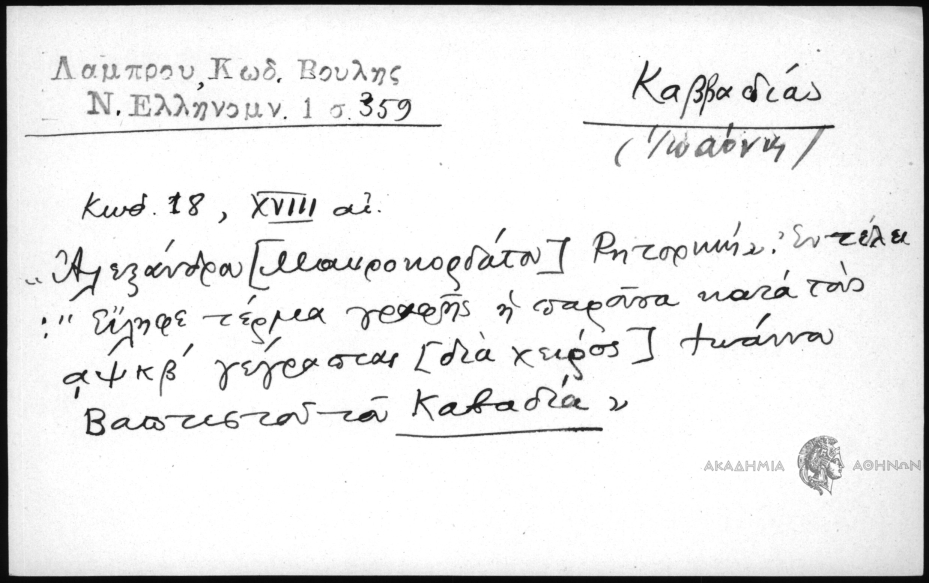 Λαμπρου, Κωδ. Βουλης
Ν. Ελληνομν. 1 σ. 359
Καββαδίας
(Ἰωάννης)
Κωδ. 18, XVIII αἰ.
"Ἀλεξάνδρου [Μαυροκορδάτου] Ρητορική". Ἐν τέλει
:" Εἴληφε τέρμα γραφῆς ἡ παροῦσα κατὰ τοὺς
͵αψκβ' γέγραπται [διὰ χειρὸς] Ἰωάννου
Βαπτιστοῦ τοῦ Καβαδία"
ΑΚΑΔΗΜΙΑ ΑΘΗΝΩΝ